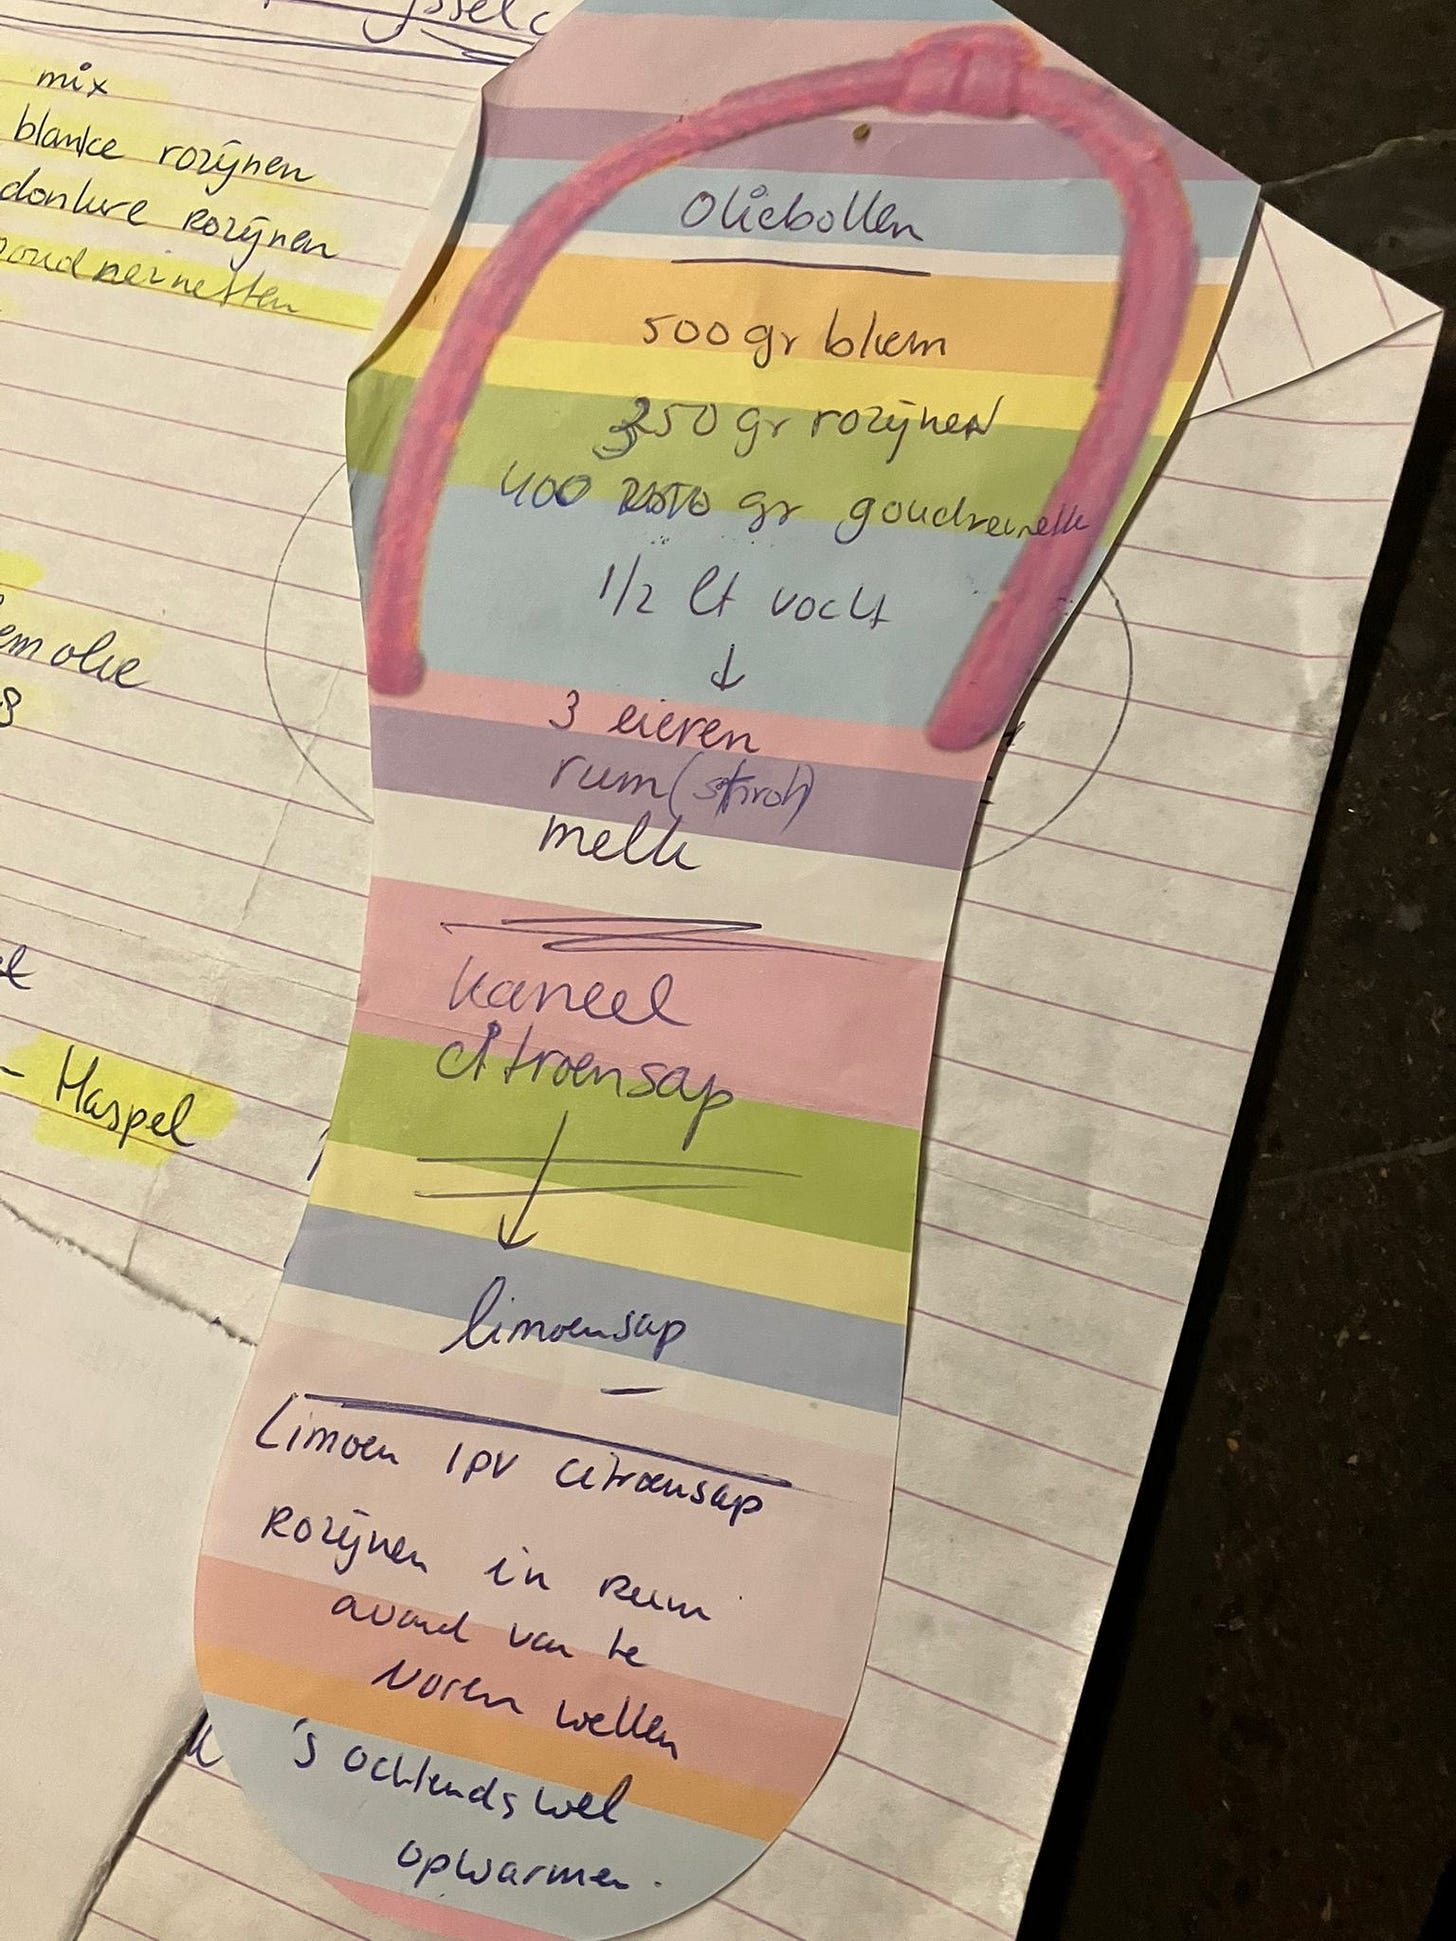 mix
blanke rozijnen
donkere Rozijnen
goudreinetten
olie
- Haspel
Oliebollen
500 gr bloem
350 gr rozijnen
400 gr goudreinette
1/2 lt vocht
↓
3 eieren
rum (stroh)
melk
kaneel
citroensap
↓
limoensap
Limoen ipv citroensap
Rozijnen in Rum
avond van te
voren wellen
's ochtends wel
opwarmen.